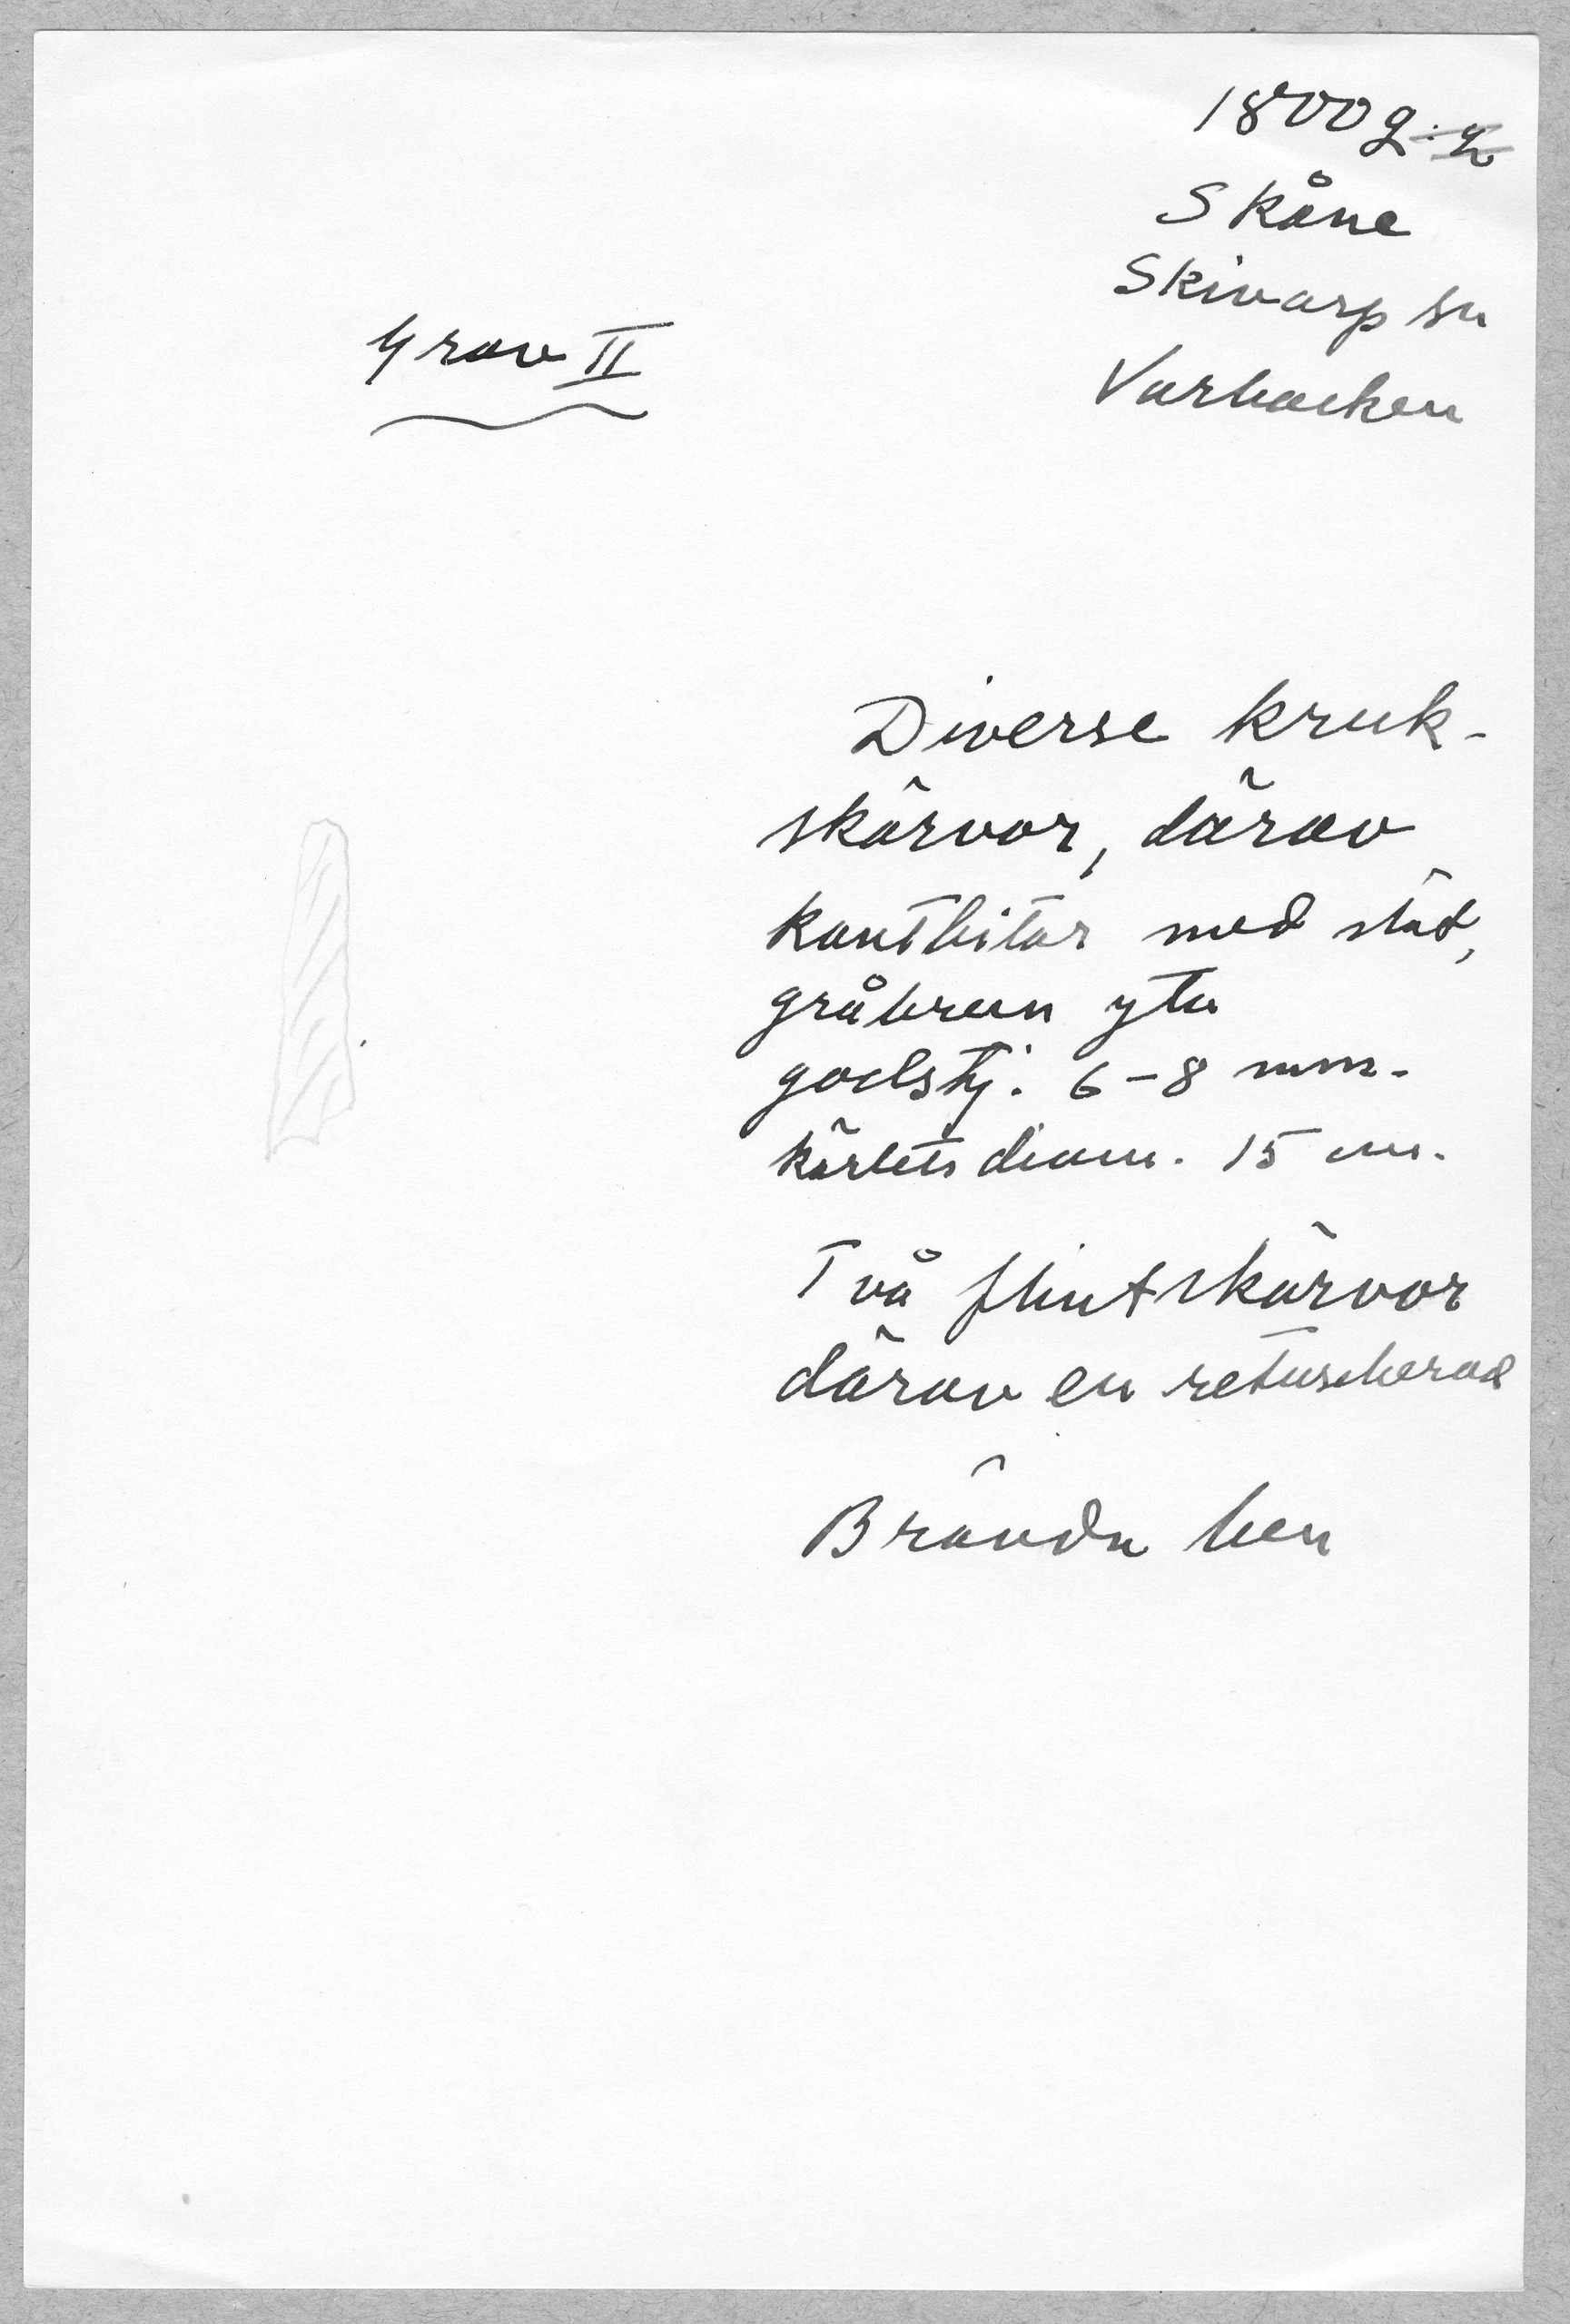 18700 g
Skåne
Skivarp sn
Varbacken
Grav II
Diverse kruk-
skärvor, därav
kantbitar med slät,
gråbrun yta
godstj. 6-8 mm.
kärlets diam. 15 cm.
Två flintskärvor
därav en retuscherad
Brända ben